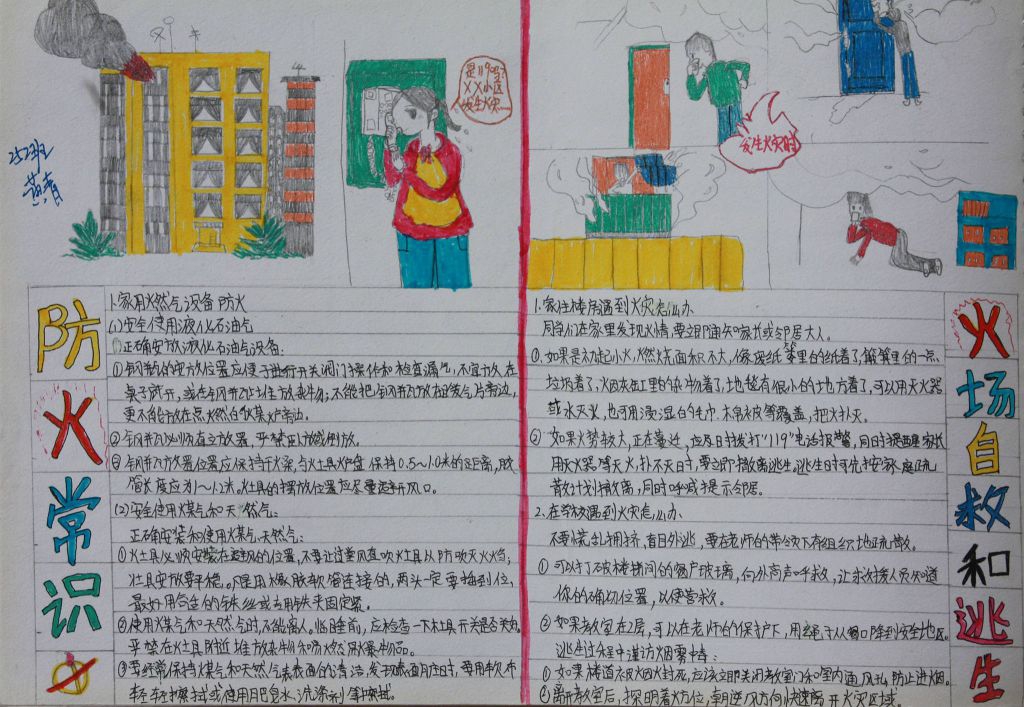 252班
黄青
是119吗?
XX小区
发生火灾……
发生火灾时
防火常识
1.家用燃气设备防火
(1)安全使用液化石油气
正确安放液化石油气设备:
① 钢瓶的安放位置应便于进行开关阀门操作和检查漏气,不宜放在
桌子底下,或在钢瓶上堆放杂物;不能把钢瓶放在暖气片旁边,
更不能放在点燃的火炉旁边。
② 钢瓶必须直立放置,严禁卧放或倒放。
③ 钢瓶放置位置应保持干燥,与灶具炉盘保持0.5~1.0米的距离,胶
管长度应为1~1.2米,灶具的摆放位置应尽量避开风口。
(2)安全使用煤气和天然气:
正确安装和使用煤气、天然气:
①灶具必须安装在通风的位置,不要让过堂风直吹灶具以防吹灭火焰;
灶具安放要平稳,凡是用橡胶软管连接的,两头一定要插到位,
最好用合适的铁丝或专用铁夹固定紧。
②使用煤气和天然气时,不能离人。临睡前,应检查一下灶具开关是否关好。
严禁在灶具附近堆放杂物和易燃易爆物品。
③要经常保持煤气和天然气表表面的清洁,发现表面脏时,要用软布
轻轻擦拭或使用肥皂水、洗涤剂等擦拭。
火场自救和逃生
1.家住楼房遇到火灾怎么办
同学们在家里发现火情,要立即通知家长或邻居大人。
① 如果是初起小火,燃烧面积不大,像废纸篓里的纸着了,簸箕里的一点
垃圾着了,烟灰缸里的杂物着了,地毯有很小的地方着了,可以用灭火器
或水灭火,也可用浸湿的毛巾、棉被等覆盖,把火扑灭。
② 如果火势较大,正在蔓延,应及时拨打“119”电话报警,同时提醒家长
用灭火器等灭火,扑不灭时,要立即撤离逃生。逃生时可先按家庭疏
散计划撤离,同时呼喊提示邻居。
2.在学校遇到火灾怎么办
不要慌乱拥挤,盲目外逃,要在老师的带领下有组织地疏散。
① 可以打破楼梯间的窗户玻璃,向外高声呼救,让求援人员知道
你的确切位置,以便营救。
② 如果教室在2层,可以在老师的保护下,用绳子从窗口降到安全地区。
逃生过程中谨访烟雾中毒:
① 如果楼道被烟火封死,应该立即关闭教室门和室内通风孔,防止进烟。
②离开教室后,探明着火方位,朝逆风方向快速离开火灾区域。